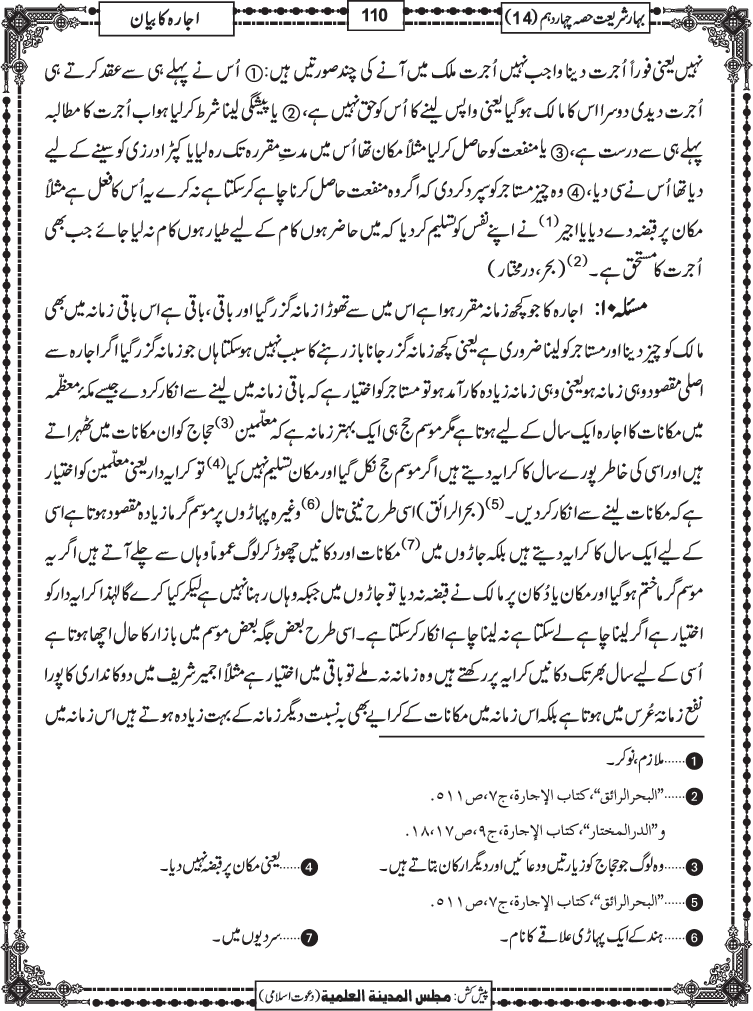 بہارِ شریعت حصہ چہاردہم (14)
110
اجارہ کا بیان
نہیں یعنی فوراً اُجرت دینا واجب نہیں اُجرت ملک میں آنے کی چند صورتیں ہیں: ① اُس نے پہلے ہی سے عقد کرتے ہی
اُجرت دیدی دوسرا اس کا مالک ہوگیا یعنی واپس لینے کا اُس کو حق نہیں ہے، ② یا پیشگی لینا شرط کرلیا ہو اب اُجرت کا مطالبہ
پہلے ہی سے درست ہے، ③ یا منفعت کو حاصل کرلیا مثلاً مکان تھا اُس میں مدتِ مقررہ تک رہ لیا یا کپڑا درزی کو سینے کے لیے
دیا تھا اُس نے سی دیا، ④ وہ چیز مستاجر کو سپرد کردی کہ اگر وہ منفعت حاصل کرنا چاہے کرسکتا ہے نہ کرے یہ اُس کا فعل ہے مثلاً
مکان پر قبضہ دے دیا یا اجیر(1) نے اپنے نفس کو تسلیم کردیا کہ میں حاضر ہوں کام کے لیے طیار ہوں کام نہ لیا جائے جب بھی
اُجرت کا مستحق ہے۔(2) (بحر، درمختار)
مسئلہ ۱۰: اجارہ کا جو کچھ زمانہ مقرر ہوا ہے اس میں سے تھوڑا زمانہ گزر گیا اور باقی، باقی ہے اس باقی زمانہ میں بھی
مالک کو چیز دینا اور مستاجر کو لینا ضروری ہے یعنی کچھ زمانہ گزر جانا باز رہنے کا سبب نہیں ہوسکتا ہاں جو زمانہ گزر گیا اگر اجارہ سے
اصلی مقصود وہی زمانہ ہو یعنی وہی زمانہ زیادہ کارآمد ہو تو مستاجر کو اختیار ہے کہ باقی زمانہ میں لینے سے انکار کردے جیسے مکۂ معظّمہ
میں مکانات کا اجارہ ایک سال کے لیے ہوتا ہے مگر موسمِ حج ہی ایک بہتر زمانہ ہے کہ معلّمین(3) حجاج کو ان مکانات میں ٹھہراتے
ہیں اور اسی کی خاطر پورے سال کا کرایہ دیتے ہیں اگر موسمِ حج نکل گیا اور مکان تسلیم نہیں کیا(4) تو کرایہ دار یعنی معلّمین کو اختیار
ہے کہ مکانات لینے سے انکار کردیں۔(5) (بحرالرائق) اسی طرح نینی تال(6) وغیرہ پہاڑوں پر موسم گرما زیادہ مقصود ہوتا ہے اسی
کے لیے ایک سال کا کرایہ دیتے ہیں بلکہ جاڑوں میں(7) مکانات اور دکانیں چھوڑ کر لوگ عموماً وہاں سے چلے آتے ہیں اگر یہ
موسمِ گرما ختم ہوگیا اور مکان یا دُکان پر مالک نے قبضہ نہ دیا تو جاڑوں میں جبکہ وہاں رہنا نہیں ہے لیکر کیا کرے گا لہٰذا کرایہ دار کو
اختیار ہے اگر لینا چاہے لے سکتا ہے نہ لینا چاہے انکار کرسکتا ہے۔ اسی طرح بعض جگہ بعض موسم میں بازار کا حال اچھا ہوتا ہے
اُسی کے لیے سال بھر تک دکانیں کرایہ پر رکھتے ہیں وہ زمانہ نہ ملے تو باقی میں اختیار ہے مثلاً اجمیر شریف میں دوکانداری کا پورا
نفع زمانۂ عُرس میں ہوتا ہے بلکہ اس زمانہ میں مکانات کے کرایے بھی بہ نسبت دیگر زمانہ کے بہت زیادہ ہوتے ہیں اس زمانہ میں
❶......ملازم، نوکر۔
❷......"البحرالرائق"، کتاب الإجارة، ج٧، ص٥١١.
و"الدرالمختار"، کتاب الإجارة، ج٩، ص١٧، ١٨.
❸......وہ لوگ جو حجاج کو زیارتیں و دعائیں اور دیگر ارکان بتاتے ہیں۔ ❹......یعنی مکان پر قبضہ نہیں دیا۔
❺......"البحرالرائق"، کتاب الإجارة، ج٧، ص٥١١.
❻......ہند کے ایک پہاڑی علاقے کا نام۔ ❼......سردیوں میں۔
پیش کش: مجلس المدینة العلمیة (دعوت اسلامی)